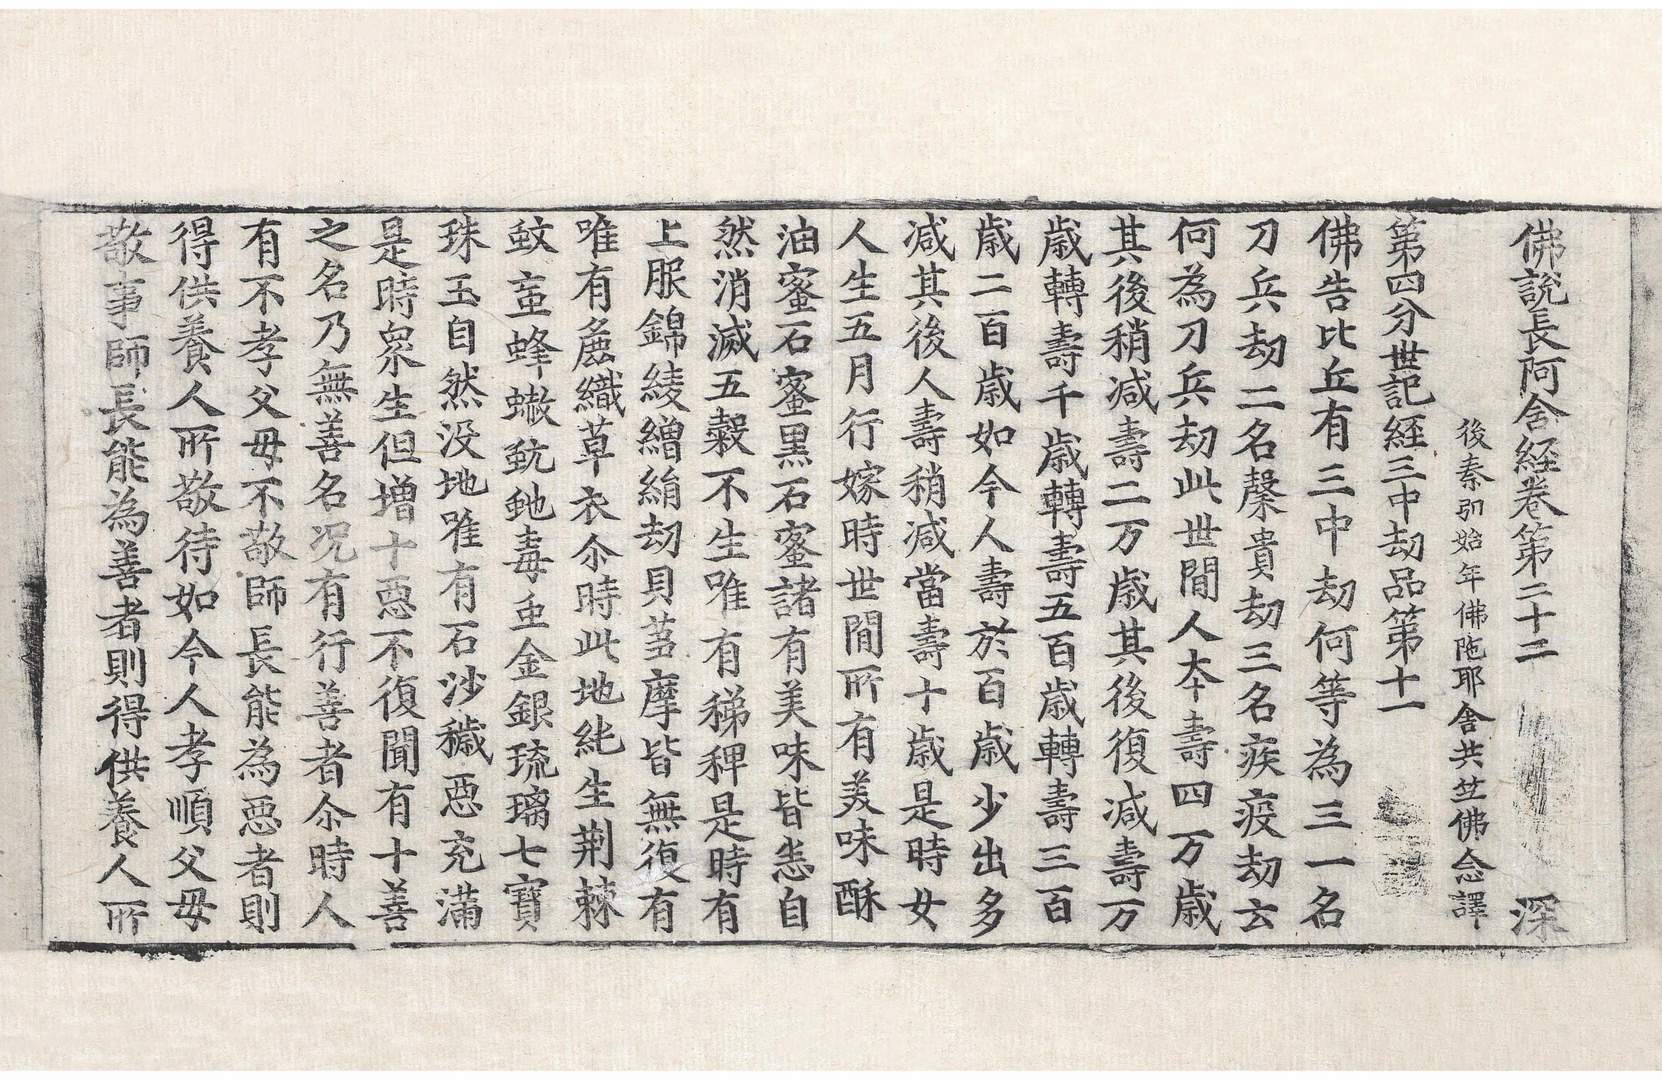 佛說長阿含経卷第二十二　深
後秦弘始年佛陁耶舍共竺佛念譯
第四分世記経三中劫品第十一
佛告比丘有三中劫何等為三一名
刀兵劫二名䅽貴劫三名疾疫劫云
何為刀兵劫此世間人夲壽四万歲
其後稍减壽二万歲其後復减壽万
歲轉壽千歲轉壽五百歲轉壽三百
歲二百歲如今人壽於百歲少出多
减其後人壽稍减當壽十歲是時女
人生五月行嫁時世間所有美味酥
油蜜石蜜黑石蜜諸有美味皆悉自
然消滅五穀不生唯有稊稗是時有
上服錦綾繒絹劫貝芻摩皆無復有
唯有麁織草衣尒時此地純生荆棘
蚊䖟蜂蠍蚖虵毒虫金銀琉璃七寳
珠玉自然没地唯有石沙穢惡充滿
是時衆生但增十惡不復聞有十善
之名乃無善名况有行善者尒時人
有不孝父母不敬師長能為惡者則
得供養人所敬待如今人孝順父母
敬事師長能為善者則得供養人所